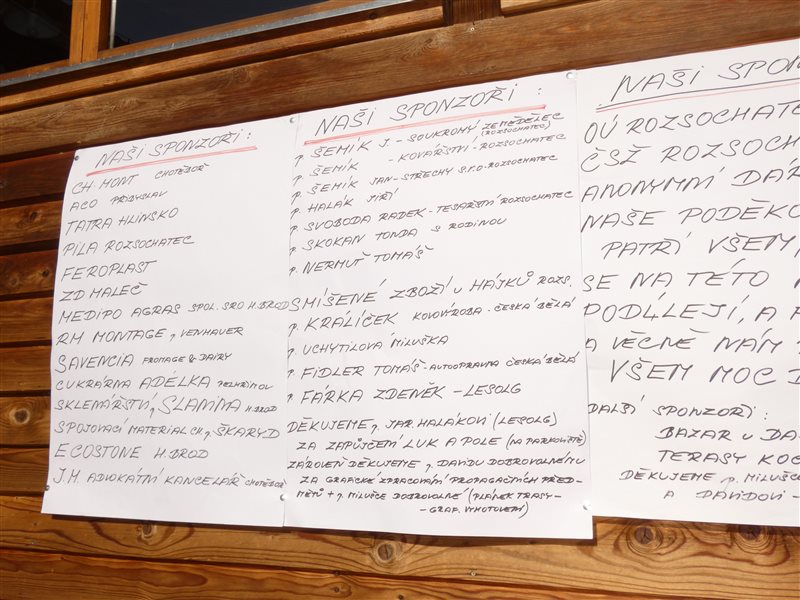 NAŠI SPONZOŘI :
CH. MONT CHOTĚBOŘ
ACO PŘIBYSLAV
TATRA HLINSKO
PILA ROZSOCHATEC
FEROPLAST
ZD MALEČ
MEDIPO AGRAS SPOL. SRO H. BROD
RM MONTAGE p. VENHAUER
SAVENCIA FROMAGE & DAIRY
CUKRÁRNA ADÉLKA PELHŘIMOV
SKLENÁŘSTVÍ p. SLAMMA H. BROD
SPOJOVACÍ MATERIÁL CH. p. ŠKARYD
ECOSTONE H. BROD
J.M. ADVOKÁTNÍ KANCELÁŘ CHOTĚBOŘ
NAŠI SPONZOŘI :
p. ŠEMÍK J. - SOUKROMÝ ZEMĚDĚLEC
(ROZSOCHATEC)
p. ŠEMÍK - KOVÁŘSTVÍ - ROZSOCHATEC
p. ŠEMÍK JAN - STŘECHY S.R.O. ROZSOCHATEC
p. HALÁK JIŘÍ
p. SVOBODA RADEK - TESAŘSTVÍ ROZSOCHATEC
p. SKOKAN TONDA S RODINOU
p. NERMUŤ TOMÁŠ
SMÍŠENÉ ZBOŽÍ U HÁJKŮ ROZS.
p. KRÁLÍČEK KOVOVÝROBA - ČESKÁ BĚLÁ
p. UCHYTILOVÁ MILUŠKA
p. FIDLER TOMÁŠ - AUTOOPRAVNA ČESKÁ BĚLÁ
p. FÁRKA ZDENĚK - LESOLG
DĚKUJEME p. JAR. HALÁKOVI (LESOLG)
ZA ZAPŮJČENÍ LUK A POLE (NA PARKOVIŠTĚ)
ZÁROVEŇ DĚKUJEME p. DAVIDU DOBROVOLNÉMU
ZA GRAFICKÉ ZPRACOVÁNÍ PROPAGAČNÍCH PŘED-
MĚTŮ + p. MILUŠCE DOBROVOLNÉ (PLÁNEK TRASY -
- GRAF. VYHOTOVENÍ)
NAŠI SPON
OÚ ROZSOCHATE
ČSŽ ROZSOCH
ANONYMNÍ DÁ
NAŠE PODĚKO
PATŘÍ VŠEM,
SE NA TÉTO
PODÍLEJÍ, A
A VĚCNĚ NÁM
VŠEM MOC D
DALŠÍ SPONZOŘI :
BAZAR U DA
TERASY KOC
DĚKUJEME p. MILUŠC
A DAVIDOVI -